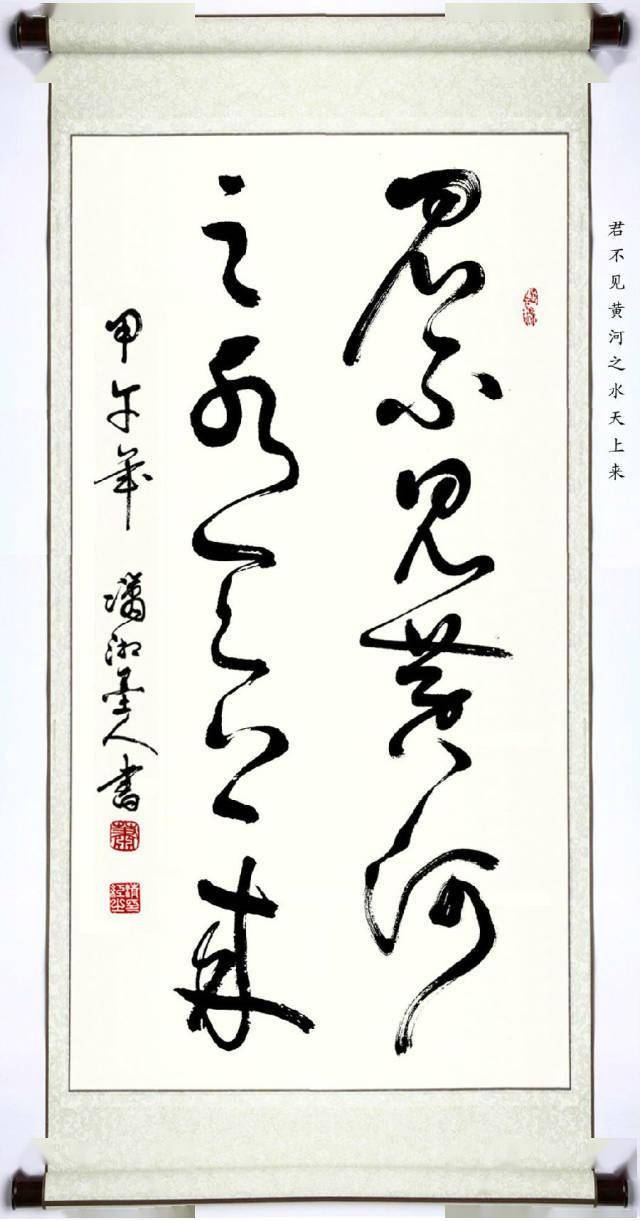 君不见黄河
之水天上来
甲午年 潇湘墨人书
君不见黄河之水天上来